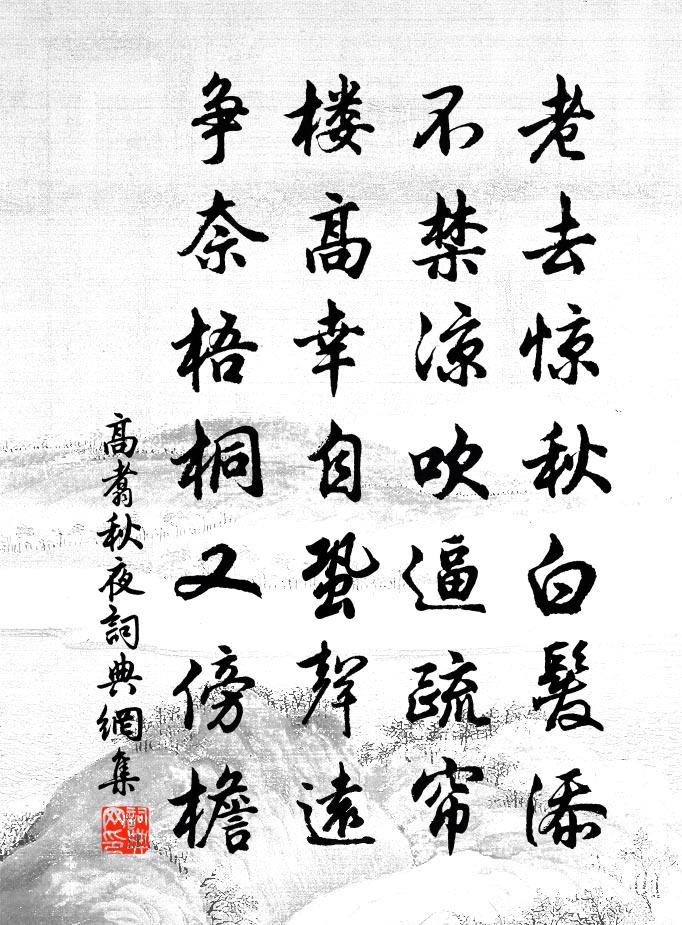 老去惊秋白髮添
不禁凉吹逼疏帘
楼高幸自蛩聲遠
争奈梧桐又傍檐
高翥秋夜詞典網集